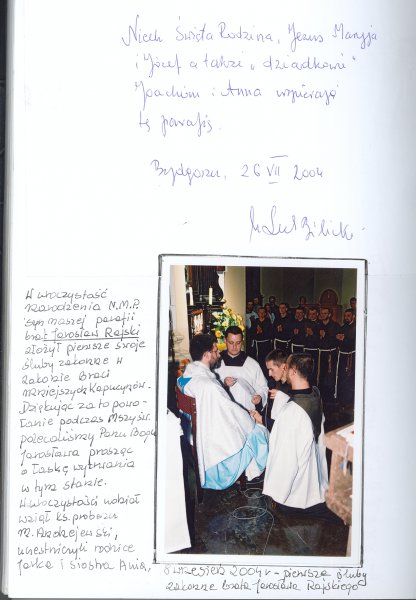 Niech Święta Rodzina, Jezus Maryja
i Józef a także „dziadkowie"
Joachim i Anna wspierają
tę parafię.
Bydgoszcz, 26 VII 2004
W uroczystość
Narodzenia N.M.P.
syn naszej parafii
brat Jarosław Rajski
złożył pierwsze swoje
śluby zakonne w
zakonie Braci
Mniejszych Kapucynów.
Dziękując za to powo-
łanie podczas Mszy św.
polecaliśmy Panu Bogu
Jarosława prosząc
o łaskę wytrwania
w tym stanie.
W uroczystości udział
wziął ks. proboszcz
M. Andrzejewski,
uczestniczyli rodzice
Jarka i siostra Ania.
8 wrzesień 2004 r - pierwsze śluby
zakonne brata Jarosława Rajskiego